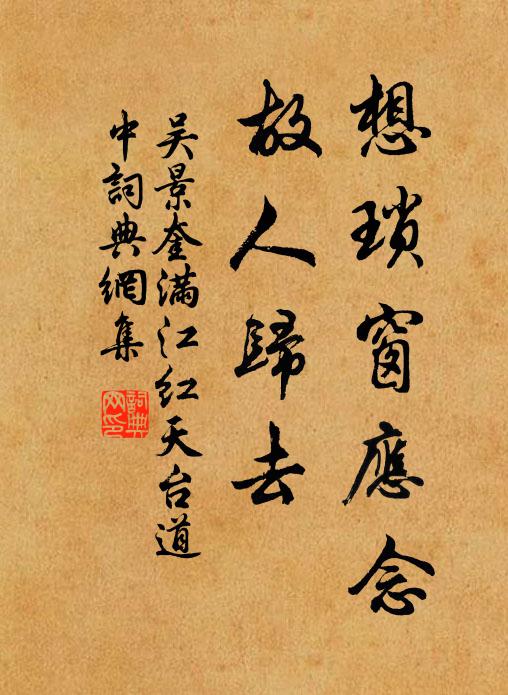 想瑣窗應念
故人歸去
吳景奎滿江紅天台道
中詞典網集
詞典
网印